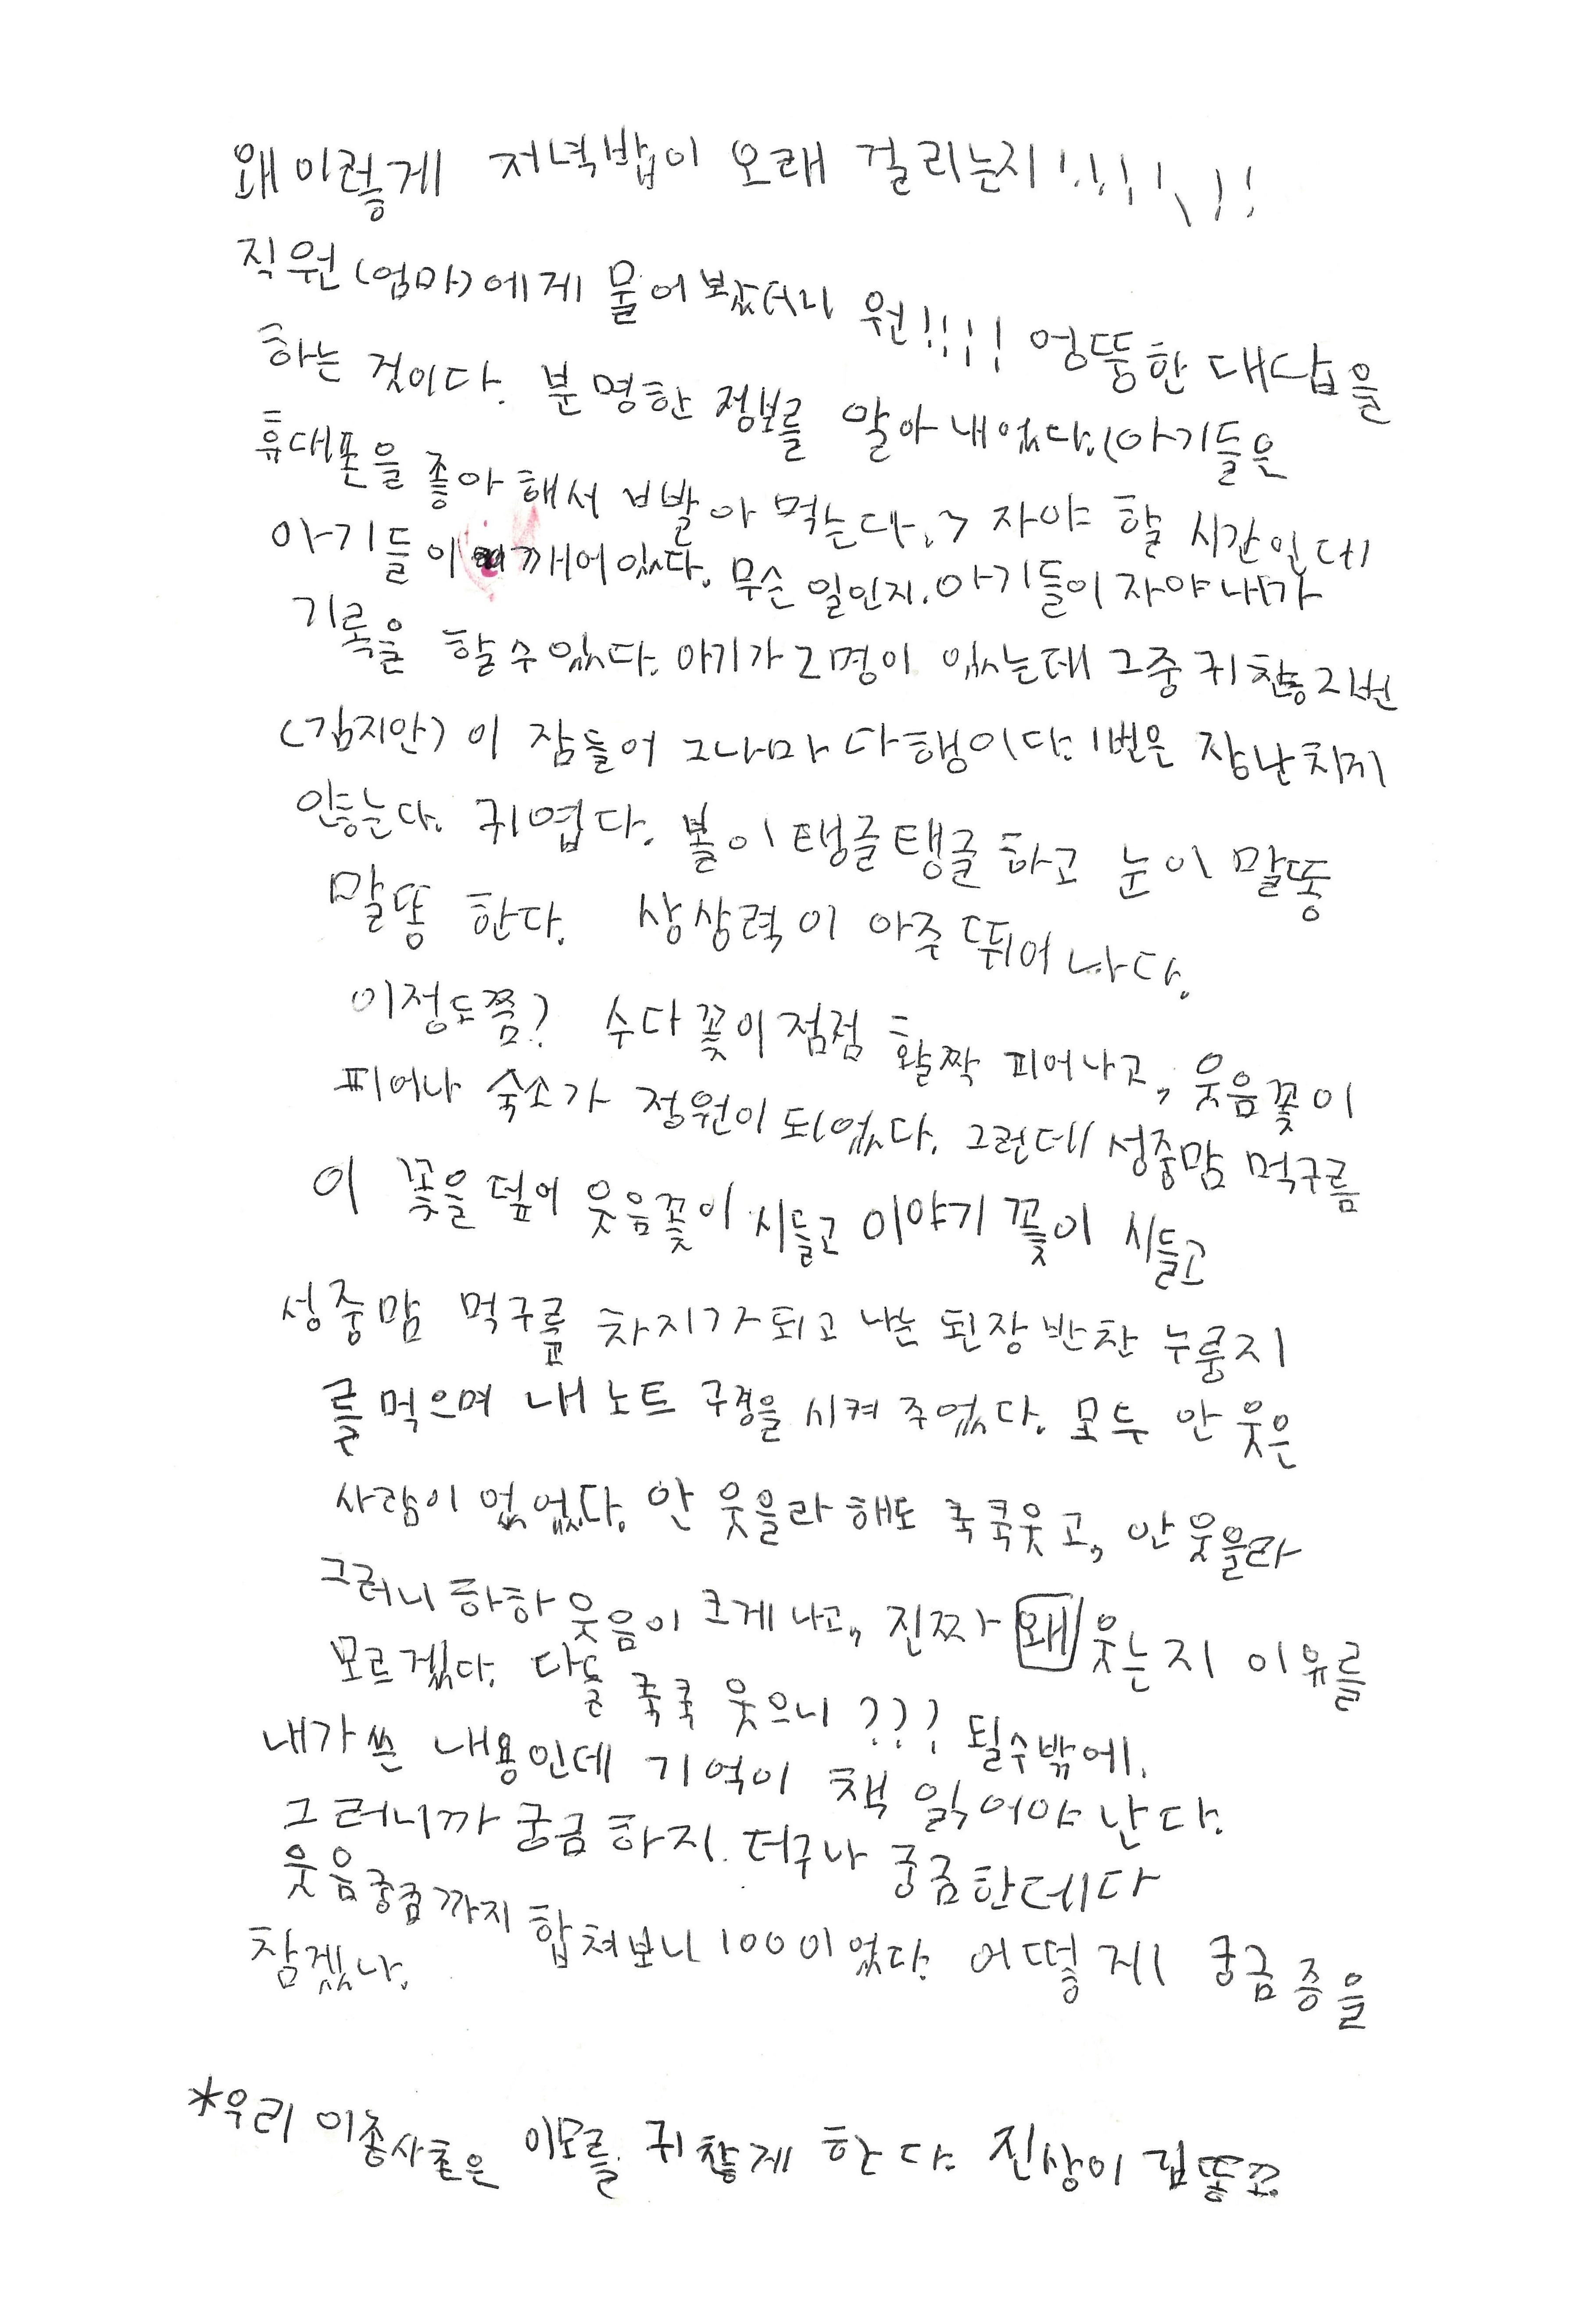 왜 이렇게 저녁밥이 오래 걸리는지!!!!!!!
직원(엄마)에게 물어봤더니 원!!!! 엉뚱한 대답을
하는 것이다. 분명한 정보를 알아 내었다.(아기들은
휴대폰을 좋아 해서 빨아 먹는다.) 자야 할 시간인데
아기들이 깨어있다. 무슨 일인지. 아기들이 자야 내가
기록을 할수있다. 아기가 2명이 있는데 그중 귀찮둥 2번
(김지안)이 잠들어 그나마 다행이다. 1번은 장난치지
안흔는다. 귀엽다. 볼이 탱글탱글 하고 눈이 말똥
말똥 한다. 상상력이 아주 뛰어나다.
이정도쯤? 수다꽃이 점점 활짝 피어나고, 웃음꽃이
피어나 숙소가 정원이 되었다. 그런데 성중맘 먹구름
이 꽃을 덮어 웃음꽃이 시들고 이야기 꽃이 시들고
성중맘 먹구름 차지가 되고 나는 된장 반찬 누룽지
를 먹으며 내 노트 구경을 시켜 주었다. 모두 안 웃은
사람이 없었다. 안 웃을라 해도 쿡쿡웃고, 안 웃을라
그러니 하하 웃음이 크게 나고, 진짜 왜 웃는지 이유를
모르겠다. 다들 쿡쿡 웃으니 ??? 될수밖에.
내가 쓴 내용인데 기억이 책 읽어야 난다.
그러니까 궁금하지. 더구나 궁금한데다
웃음궁금까지 합쳐보니 100이었다. 어떻게 궁금증을
참겠나.
*우리 이종사촌은 이모를 귀찮게 한다. 진상이